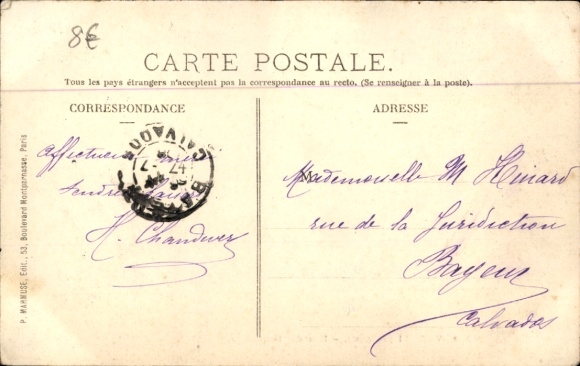 8€
CARTE POSTALE.
Tous les pays étrangers n'acceptent pas la correspondance au recto. (Se renseigner à la poste).
CORRESPONDANCE
ADRESSE
Affectueux
tendres baisers
H. Chanduver
BAYEUX
CALVADOS
Mademoiselle M Hinard
rue de la Juridiction
Bayeux
Calvados
P. MARMUSE, Edit., 53, Boulevard Montparnasse, Paris